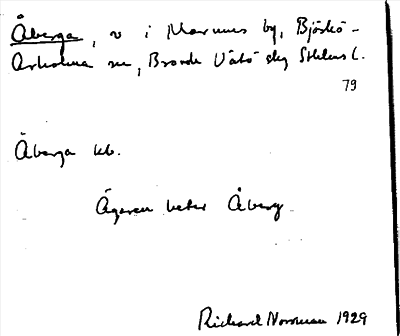 Åberga, v i Marums by, Björkö-
Arholma sn, Brovde Väts slg Sthlms l.
79
Åberga kb.
Ägaren heter Åberg
Richard Norrman 1929